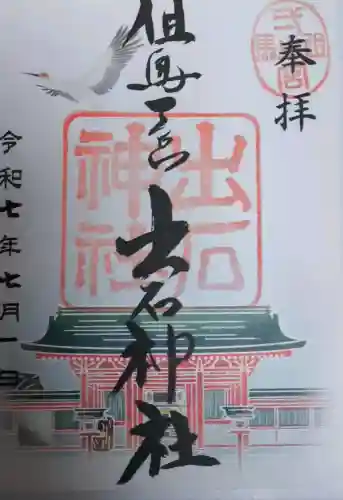 奉拝
但馬一宮出石神社
出石
神社
令和七年七月一日